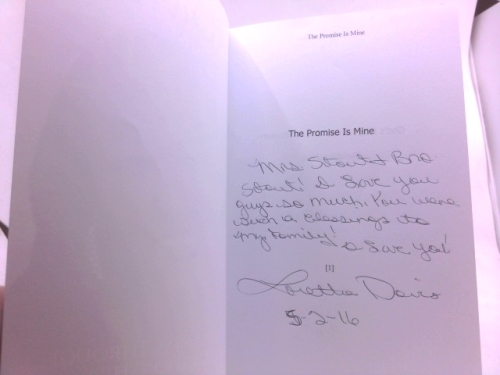 The Promise Is Mine
The Promise Is Mine
Mrs Stout & Bro
Stout! I Love you
guys so much. You were
such a blessings to
my family! I Love You!
[1]
Loretta Davis
5-2-16